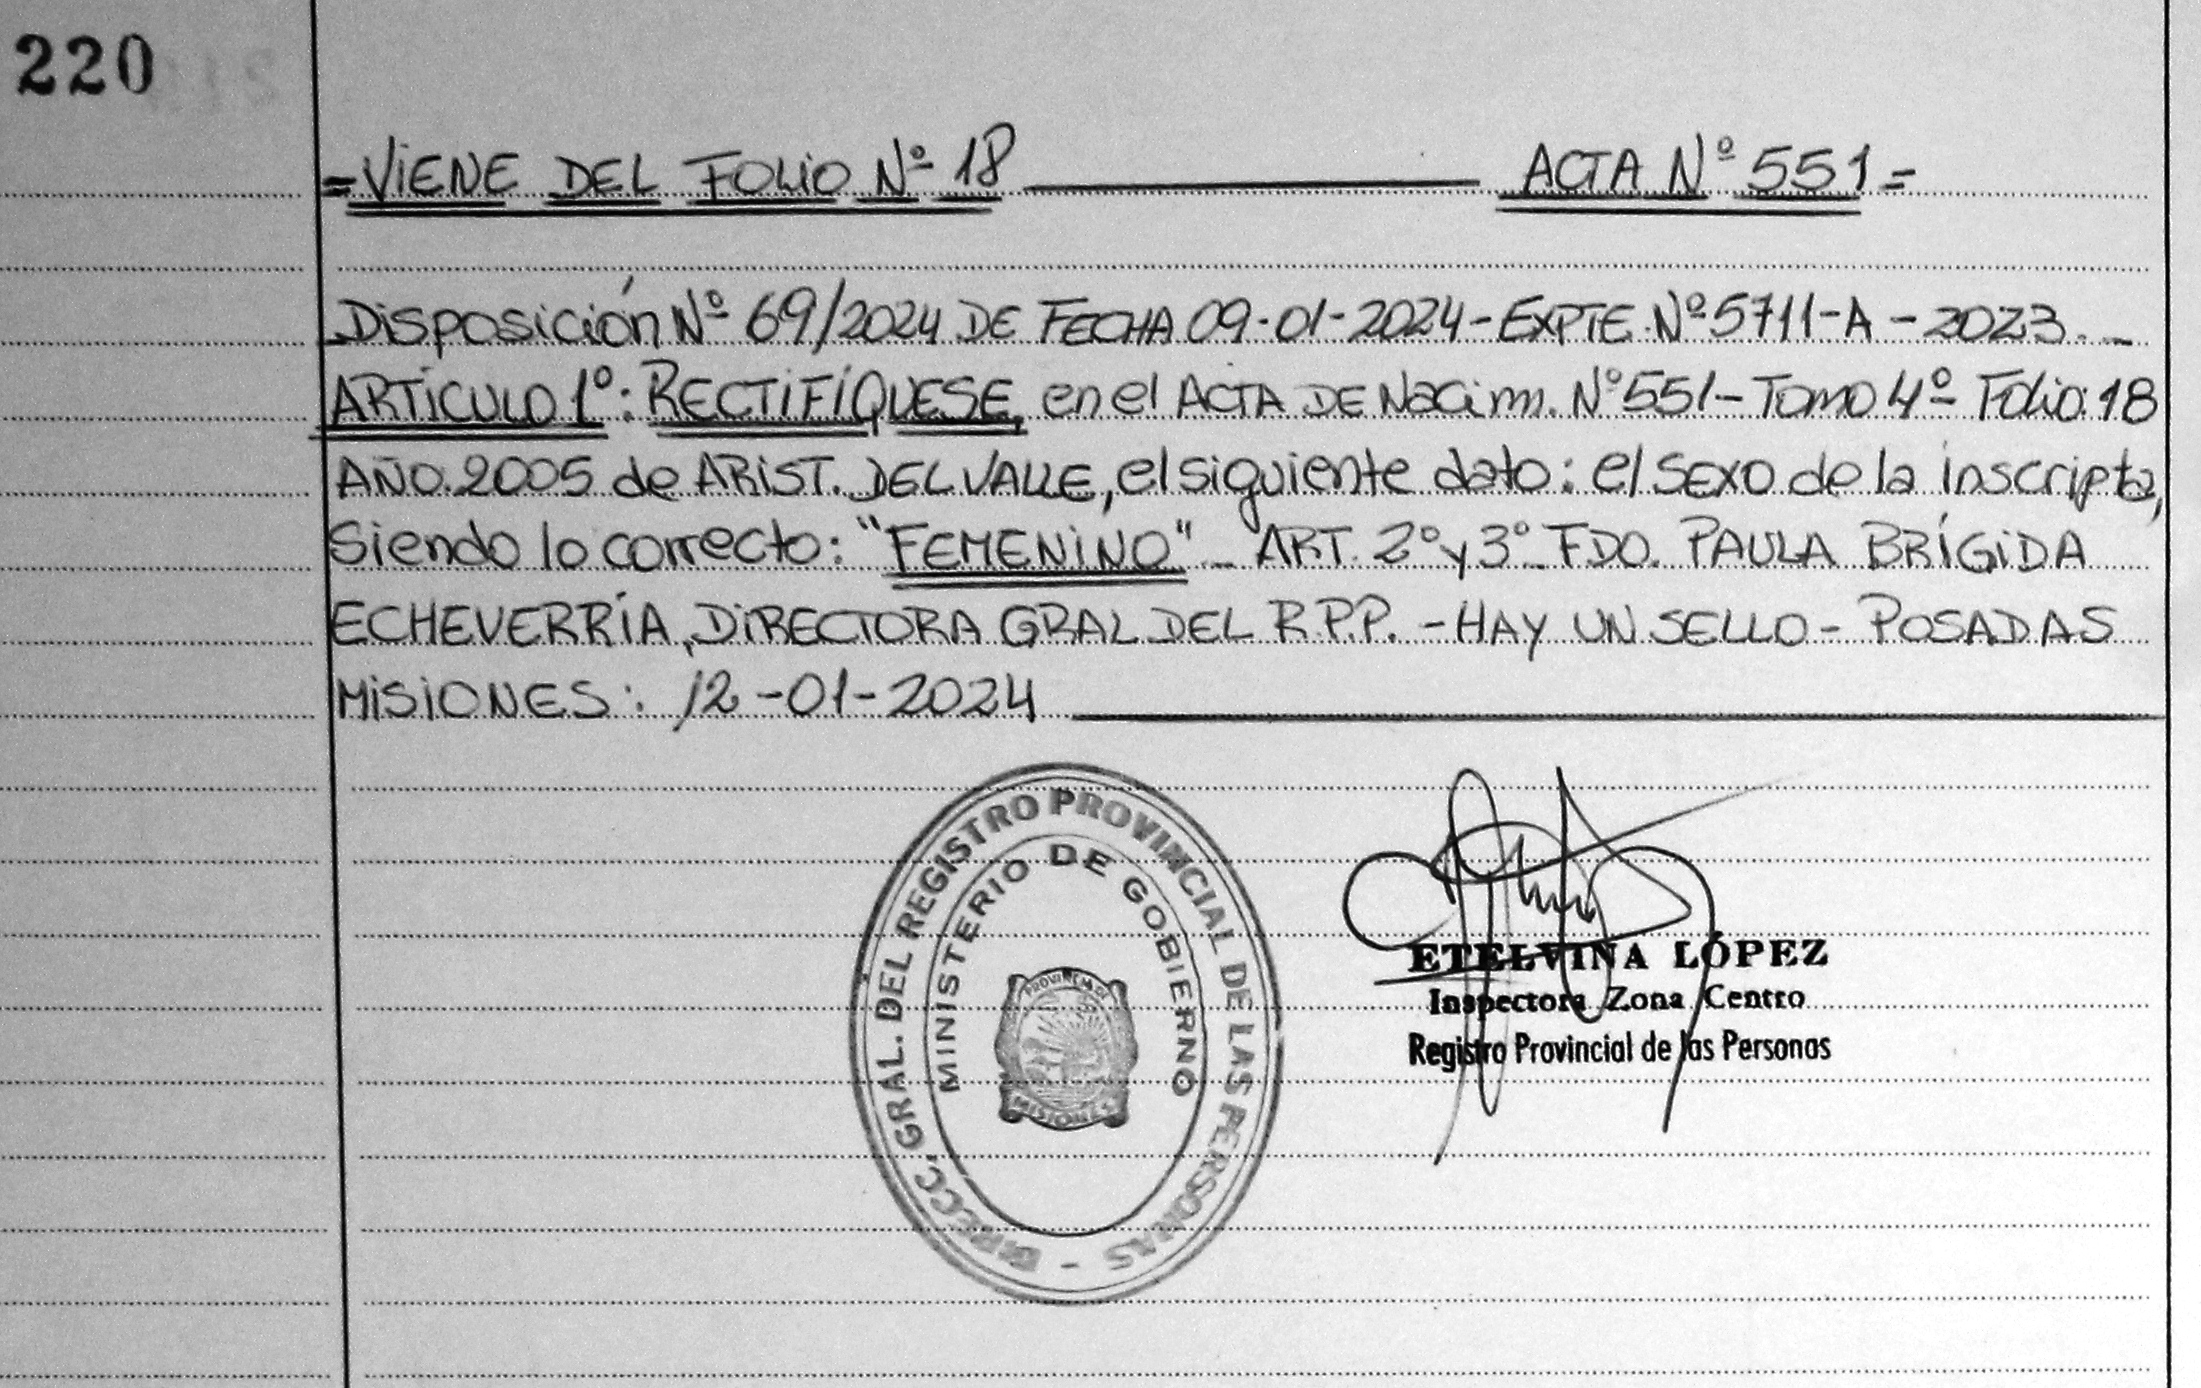 220
=VIENE DEL FOLIO Nº 18 ACTA Nº 551=
Disposición Nº 69/2024 DE FECHA 09-01-2024-EXPTE.Nº5711-A-2023._
ARTÍCULO 1º: RECTIFÍQUESE, en el ACTA DE Nacim. Nº551-Tomo 4º Folio:18
AÑO.2005 de ARIST. DEL VALLE, el siguiente dato: el SEXO de la inscripta,
Siendo lo correcto: "FEMENINO"_ ART. 2º y 3º_ FDO. PAULA BRÍGIDA
ECHEVERRÍA, DIRECTORA GRAL DEL R.P.P. -HAY UN SELLO- POSADAS
MISIONES: 12-01-2024
DIRECC. GRAL. DEL REGISTRO PROVINCIAL DE LAS PERSONAS -
MINISTERIO DE GOBIERNO
PROVINCIA DE
MISIONES
ETELVINA LÓPEZ
Inspectora Zona Centro
Registro Provincial de las Personas